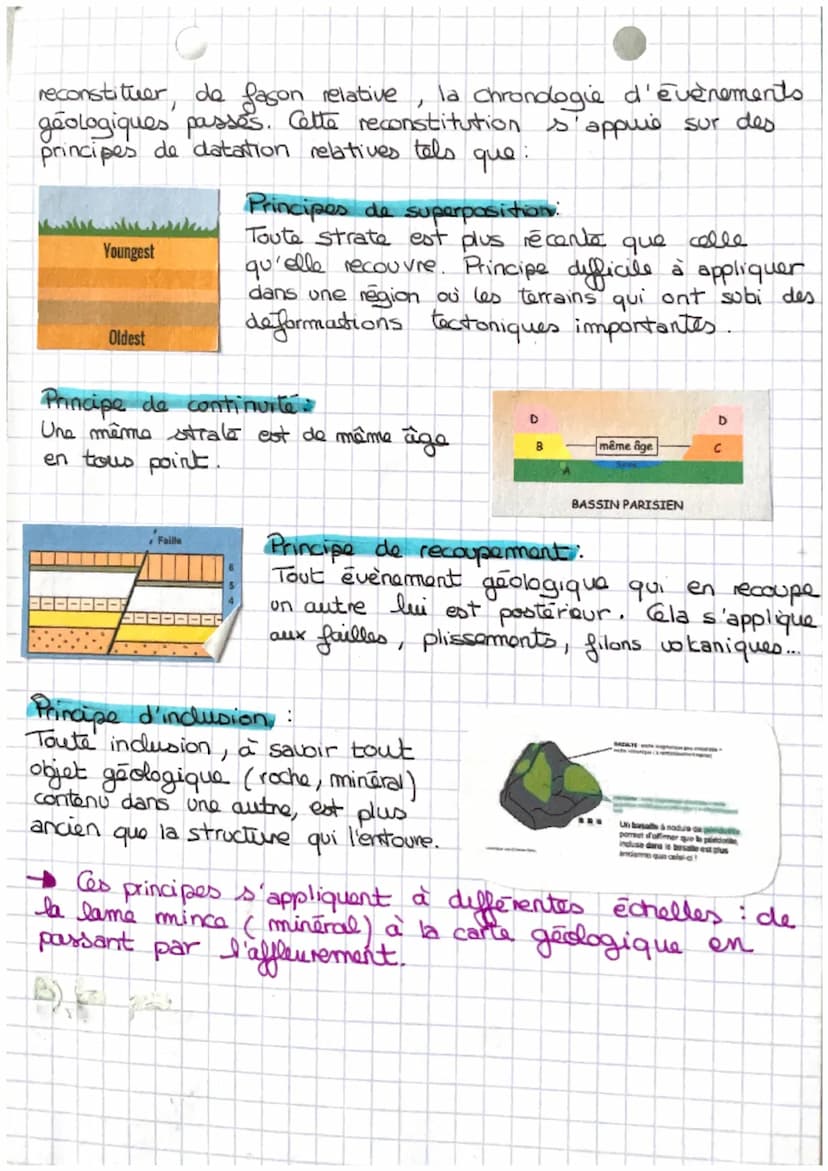 reconstituer, de façon relative, la chronologie d'évènements
géologiques passés. Cette reconstitution s'appuie sur des
principes de datation relatives tels que :
Principes de superposition:
Toute strate est plus récente que celle
qu'elle recouvre. Principe difficile à appliquer
dans une région où les terrains qui ont subi des
déformations tectoniques importantes.
Youngest
Oldest
Principe de continuité :
Une même strate est de même âge
en tous point.
D
D
B
même âge
C
A
BASSIN PARISIEN
Faille
6
5
4
Principe de recoupement :
Tout évènement géologique qui en recoupe
un autre lui est postérieur. Cela s'applique
aux failles, plissements, filons volcaniques...
Principe d'inclusion :
Toute inclusion, à savoir tout
objet géologique (roche, minéral)
contenu dans une autre, est plus
ancien que la structure qui l'entoure.
BASALTE
Un basalte à nodule de péridotite
permet d'affirmer que la péridotite,
incluse dans le basalte est plus
ancienne que celui-ci !
→ Ces principes s'appliquent à différentes échelles : de
la lame mince (minéral) à la carte géologique en
passant par l'affleurement.